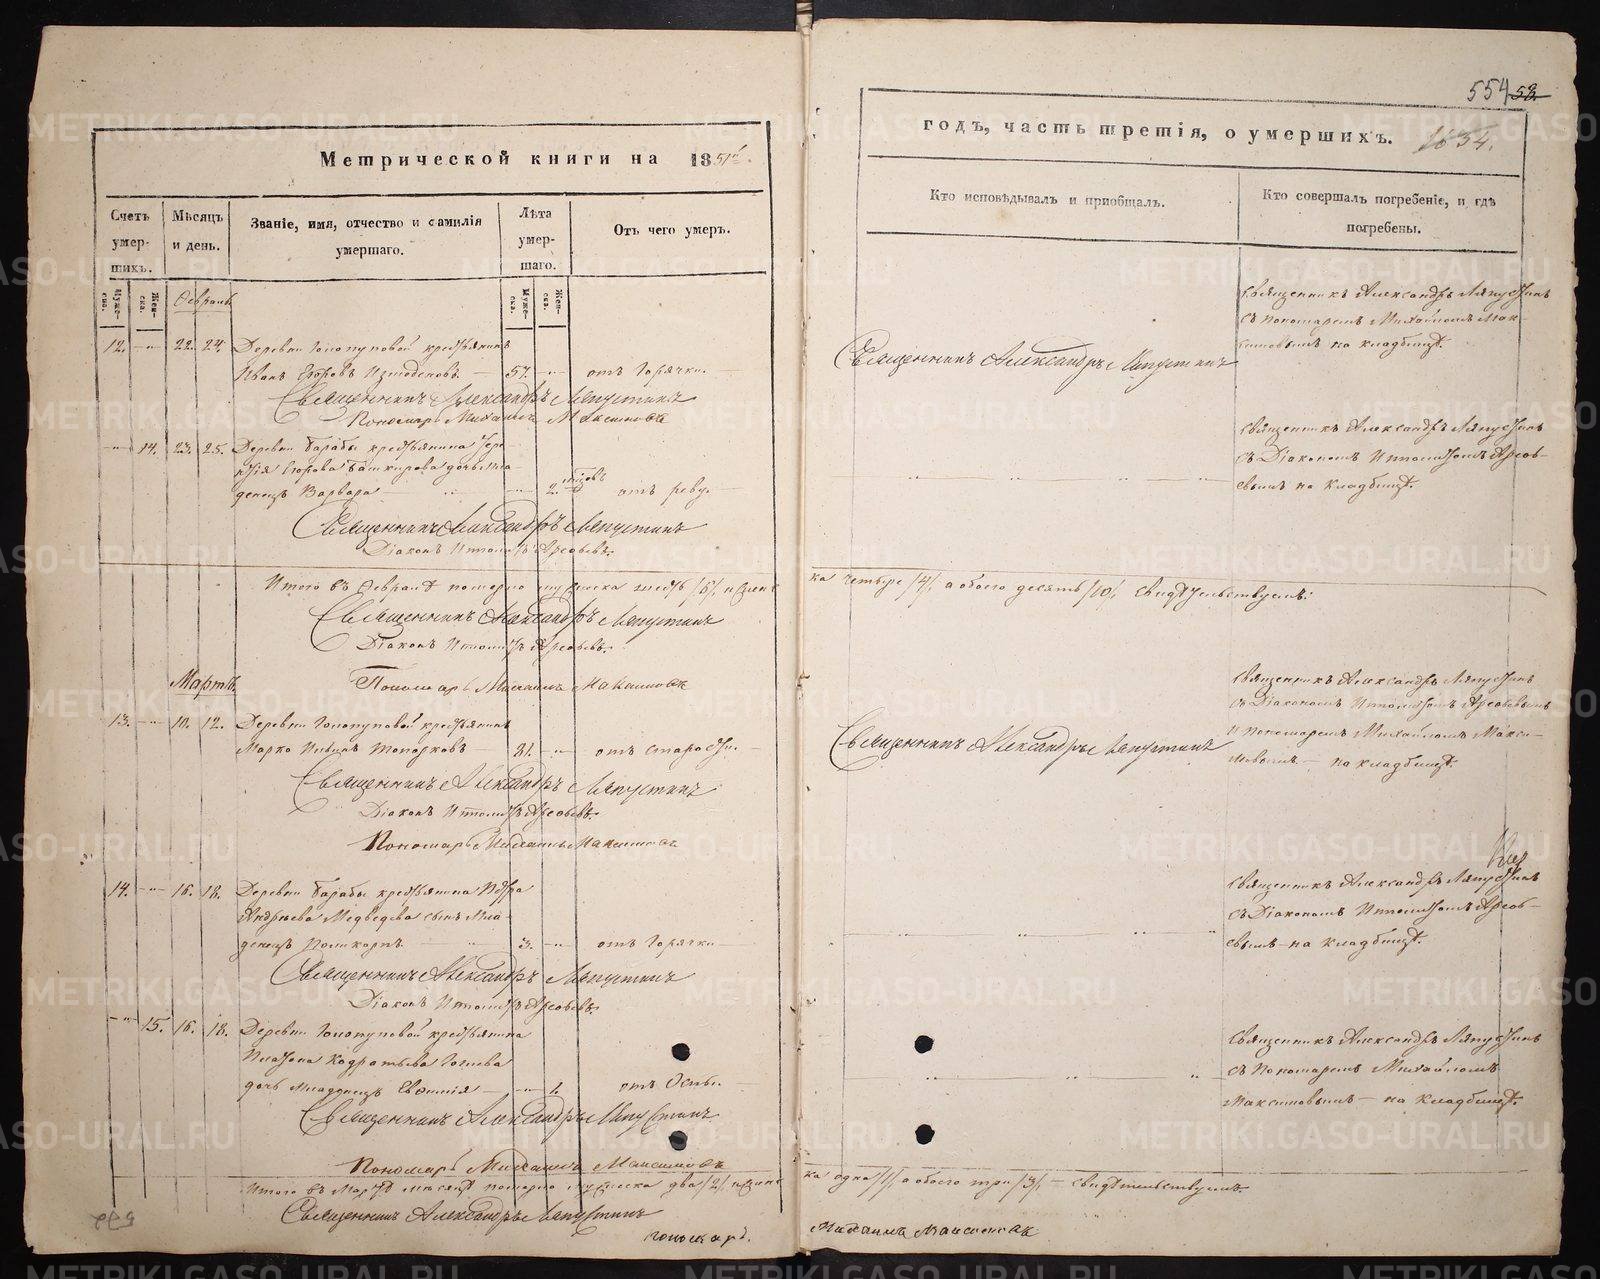 Метрической книги на 1851й.
Счетъ умер-шихъ.
Мѣсяцъ и день.
Званіе, имя, отчество и фамилія умершаго.
Лѣта умер-шаго.
Отъ чего умеръ.
Муже-ска.
Жен-ска.
Муже-ска.
Жен-ска.
Февраль
12. 22. 24. Деревни Голопуповой крестьянинъ
Иванъ Егоровъ 57. отъ горячки.
Священникъ Александръ Ляпустинъ
Пономарь Михаилъ Максимовъ
14. 23. 25. Деревни Барабы крестьянина Тере-
нтія Егорова Башкирова дочь мла-
денецъ Варвара 2. отъ реву.
Священникъ Александръ Ляпустинъ
Діаконъ Ипполитъ Арсеьевъ.
Итого въ Февралѣ померло мужеска шесть /6/, и женс
Священникъ Александръ Ляпустинъ
Діаконъ Ипполитъ
Пономарь Михаилъ Максимовъ
Мартъ.
13. 10. 12. Деревни Голопуповой крестьянинъ
Марко 81. отъ старости.
Священникъ Александръ Ляпустинъ
Діаконъ Ипполитъ
Пономарь Михаилъ Максимовъ
14. 16. 18. Деревни Барабы крестьянина Петра
Андреева Медведева сынъ мла-
денецъ Поликарпъ 3. отъ горячки
Священникъ Александръ Ляпустинъ
Діаконъ Ипполитъ
15. 16. 18. Деревни Голопуповой крестьянина
Платона Кодратьева
дочь младенецъ Евфимія 1. отъ Оспы.
Священникъ Александръ Ляпустинъ
Пономарь Михаилъ Максимовъ
Итого въ Мартѣ месяцѣ померло мужеска два /2/, и женс
Священникъ Александръ Ляпустинъ
Пономарь
554 58.
годъ, часть третія, о умершихъ. 1634.
Кто исповѣдывалъ и пріобщалъ.
Кто совершалъ погребеніе, и гдѣ погребены.
Священникъ Александръ Ляпустинъ
Священникъ Александръ Ляпустинъ
съ пономаремъ Михайломъ Мак-
симовымъ на кладбищѣ.
Священникъ Александръ Ляпустинъ
съ Діакономъ Ипполитомъ
на кладбищѣ.
ка четыре /4/, а обоего десять /10/, свидѣтельствуемъ:
Священникъ Александръ Ляпустинъ
Священникъ Александръ Ляпустинъ
съ Діакономъ Ипполитомъ
и пономаремъ Михайломъ Макси-
мовымъ на кладбищѣ.
Священникъ Александръ Ляпустинъ
съ Діакономъ Ипполитомъ
на кладбищѣ.
Священникъ Александръ Ляпустинъ
съ Пономаремъ Михайломъ
Максимовымъ на кладбищѣ.
ка одна /1/, а обоего три /3/, свидѣтельствуемъ.
Михаилъ Максимовъ
METRIKI.GASO-URAL.RU